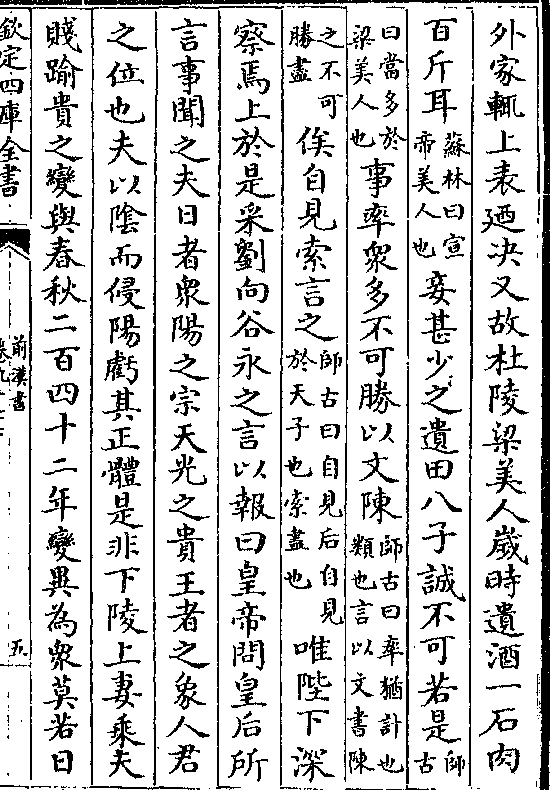 外家輒上表廼決又故杜陵梁美人歲時遺酒一石肉
百斤耳蘇林曰宣帝美人也妾甚少之遺田八子誠不可若是師古
曰當多於梁美人也事率衆多不可勝以文陳師古曰率猶計也類也言以文書陳
之不可勝盡俟自見索言之師古曰自見后自見於天子也索盡也唯陛下深
察焉上於是采劉向谷永之言以報曰皇帝問皇后所
言事聞之夫日者衆陽之宗天光之貴王者之象人君
之位也夫以陰而侵陽虧其正體是非下陵上妻乘夫
賤踰貴之變與春秋二百四十二年變異為衆莫若日
欽定四庫全書
前漢書
卷九十七下
五